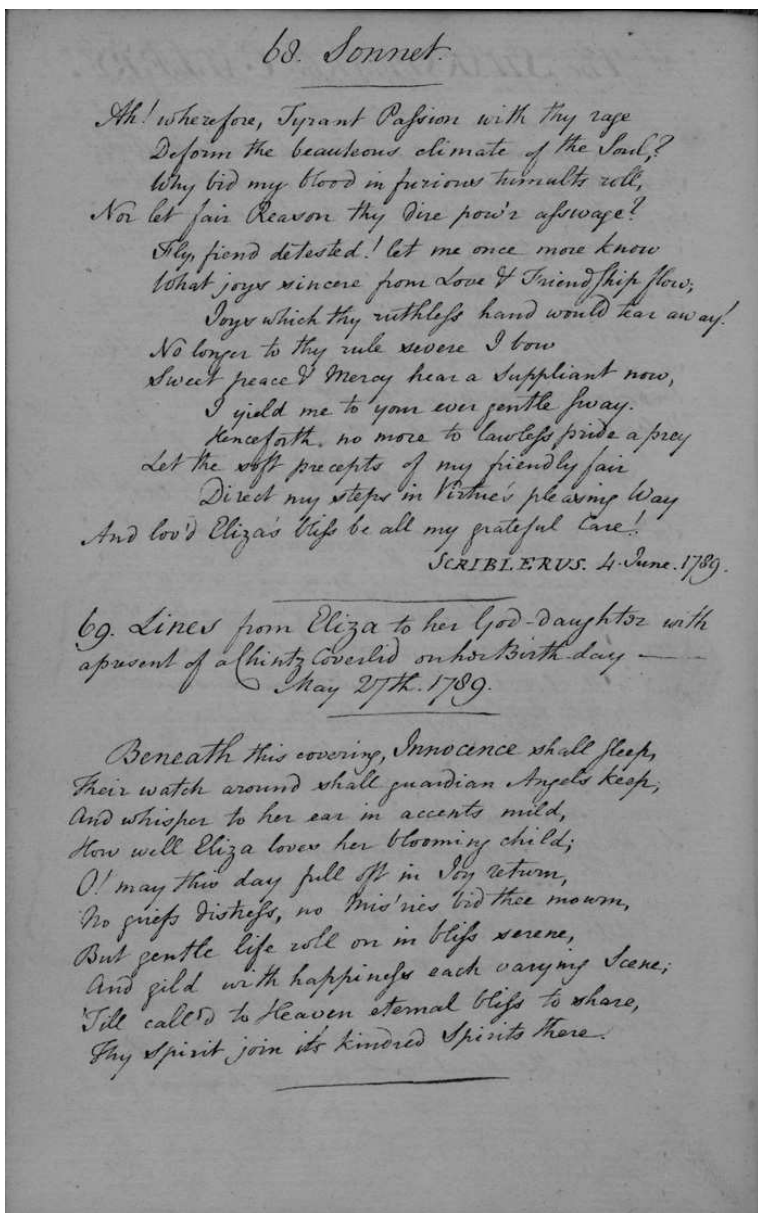 68. Sonnet.
Ah! wherefore, Tyrant Paſsion with thy rage
Deform the beauteous climate of the Soul,?
Why bid my blood in furious tumults roll,
Nor let fair Reason thy dire pow'r aſswage?
Fly, fiend detested! let me once more know
What joys sincere from Love & Friendſhip flow;
Joys which thy ruthleſs hand would tear away!
No longer to thy rule severe I bow
Sweet peace & Mercy hear a Suppliant now,
I yield me to your ever gentle ſway.
Henceforth, no more to lawleſs pride a prey
Let the soft precepts of my friendly fair
Direct my steps in Virtue's pleasing Way
And lov'd Eliza's bliſs be all my grateful Care!
SCRIBLERUS. 4. June. 1789.
69. Lines from Eliza to her God-daughter with
a present of a Chintz Coverlid on her Birth-day —
May 27th. 1789.
Beneath this covering, Innocence shall ſleep,
Their watch around shall guardian Angels keep,
And whisper to her ear in accents mild,
How well Eliza loves her blooming child;
O! may this day full oft in Joy return,
No griefs distreſs, no Mis'ries bid thee mourn,
But gentle life roll on in bliſs serene,
And gild with happineſs each varying Scene;
'Till call'd to Heaven eternal bliſs to share,
Thy Spirit join its kindred Spirits there.